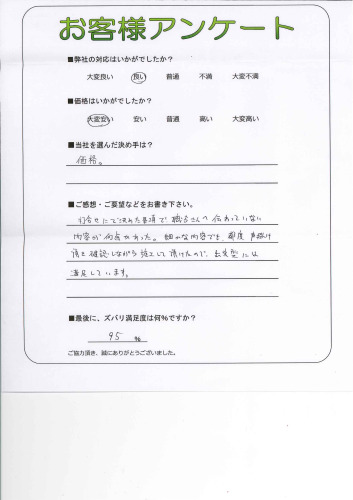 お客様アンケート
■弊社の対応はいかがでしたか?
大変良い 良い 普通 不満 大変不満
■価格はいかがでしたか?
大変安い 安い 普通 高い 大変高い
■当社を選んだ決め手は?
価格。
■ご感想・ご要望などをお書き下さい。
打合せにて決めた事項で職方さんへ伝わっていない
内容が何点かあった。細かな内容でも都度声掛け
頂き確認しながら施工して頂けたので、出来型には
満足しています。
■最後に、ズバリ満足度は何%ですか?
95 %
ご協力頂き、誠にありがとうございました。